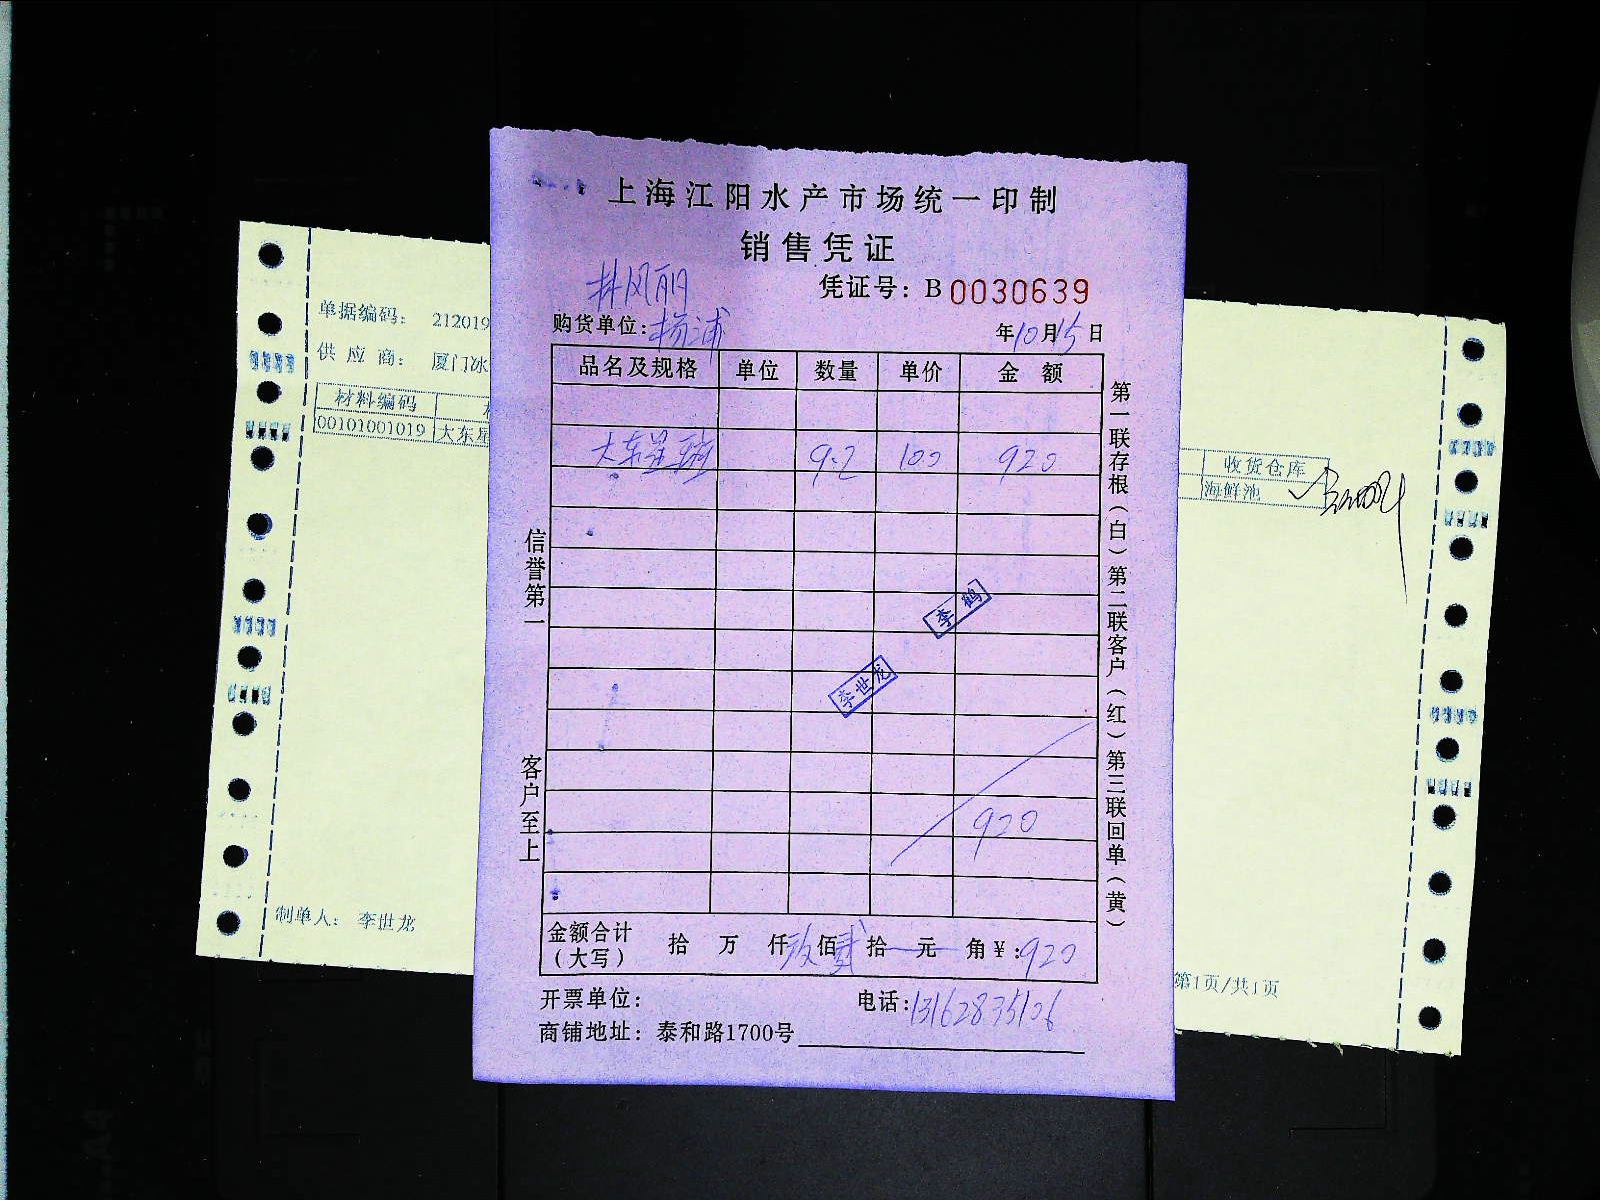 上海江阳水产市场统一印制
销售凭证
林凤丽
凭证号：B 0030639
购货单位：杨浦
年10月15日
品名及规格 单位 数量 单价 金额
大东星斑 9.2 100 920
李鹤
李世龙
920
金额合计（大写） 拾 万 仟玖佰贰拾 元 角￥：920
开票单位：
电话：13162835126
商铺地址：泰和路1700号
信誉第一
客户至上
第一联存根（白）第二联客户（红）第三联回单（黄）
单据编码： 212019
供应商： 厦门冰
材料编码
00101001019 大东星
制单人： 李世龙
收货仓库
海鲜池
第1页/共1页